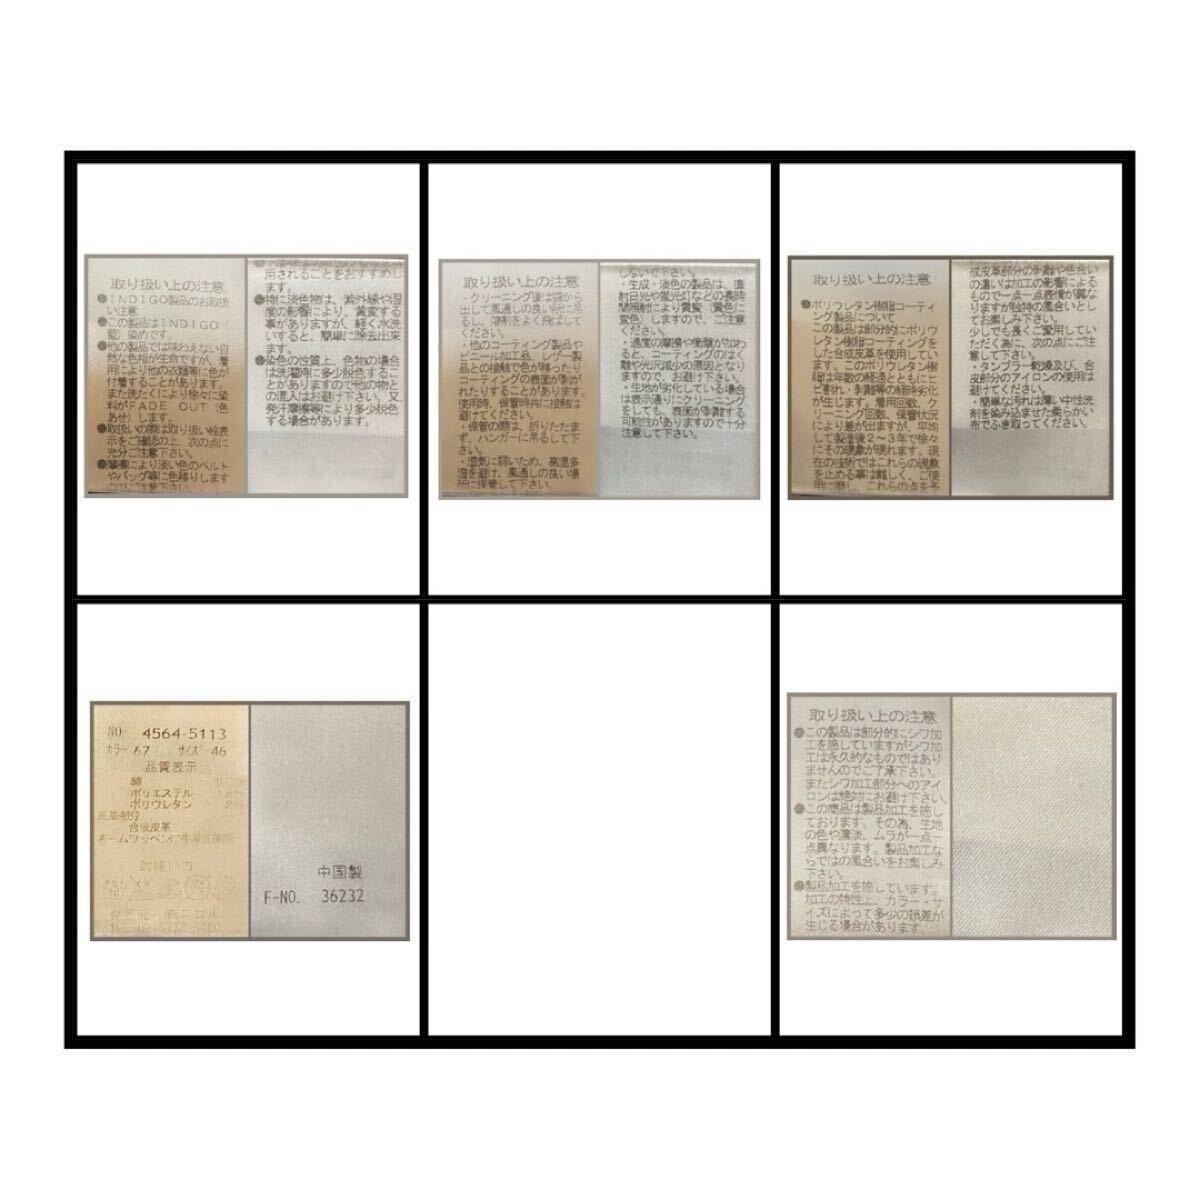 取り扱い上の注意
●INDIGO製品のお取扱
い注意
●この製品はINDIGO(
藍)染めです。
●他の製品では味わえない自
然な色相が生命ですが、着
用により他の衣類等に色が
付着することがあります。
また洗たくにより徐々に染
料がFADE OUT(色
あせ)します。
●取扱いの際は取り扱い絵表
示をご確認の上、次の点に
充分ご注意下さい。
●摩擦により淡い色のベルト
やバッグ等に色移りします
のでご注意下さい。
用されることをおすすめし
ます。
●特に淡色物は、紫外線や湿
度の影響により、黄変する
事がありますが、軽く水洗
いすると、簡単に除去出来
ます。
●染色の性質上、色物の場合
は洗濯時に多少脱色するこ
とがありますので他の物と
の混入はお避け下さい。又、
発汗摩擦等により多少脱色
する場合があります。
取り扱い上の注意
・クリーニング後は袋から
出して風通しの良い所に吊
るし、溶剤をよく飛ばして
ください。
・他のコーティング製品や
ビニール加工品、レザー製
品との接触で色が移ったり
コーティングの表面が剥が
れたりすることがあります。
使用時、保管時共に接触は
避けてください。
・保管の際は、折りたたま
ず、ハンガーに吊るして下
さい。
・湿気に弱いため、高温多
湿を避け、風通しの良い場
所に保管して下さい。
しないで下さい。
・生成・淡色の製品は、直
射日光や蛍光灯などの長時
間照射により黄変(黄色に
変色)しますので、ご注意
ください。
・過度の摩擦や衝撃が加わ
ると、コーティングのはく
離や光沢減少の原因となり
ますので、お避け下さい。
・生地が劣化している場合
は表示通りにクリーニング
をしても、表面が剥離する
可能性がありますので十分
注意して下さい。
取り扱い上の注意
●ポリウレタン樹脂コーティ
ング製品について
この製品は部分的にポリウ
レタン樹脂コーティングを
した合成皮革を使用してい
ます。このポリウレタン樹
脂は年数の経過とともにヒ
ビ割れ・剥離等の経時劣化
が生じます。着用回数、ク
リーニング回数、保管状況
により差が出ますが、平均
して製造後2〜3年で徐々
にその現象が現れます。現
在の技術ではこれらの現象
を止める事は難しく、ご使
用に際し、これらの点を予
成皮革部分の剥離や色合い
の違いは加工の影響による
もので一点一点表情が異な
りますが独特の風合いとし
てお楽しみ下さい。
少しでも長くご愛用してい
ただく為に、次の点にご注
意して下さい。
・タンブラー乾燥及び、合
皮部分のアイロンの使用は
避けてください。
・簡単な汚れは薄い中性洗
剤を染み込ませた柔らかい
布でふき取ってください。
NO. 4564-5113
カラー 67 サイズ 46
品質表示
綿
ポリエステル
ポリウレタン 2%
皮革部分
合成皮革
取扱い方
中国製
F-NO. 36232
取り扱い上の注意
●この製品は部分的にシワ加
工を施していますがシワ加
工は永久的なものではあり
ませんのでご了承下さい。
またシワ加工部分へのアイ
ロンは絶対にお避け下さい。
●この商品は製品加工を施し
ております。その為、生地
の色や濃淡、ムラが一点一
点異なります。製品加工な
らではの風合いをお楽しみ
下さい。
●製品加工を施しています。
加工の特性上、カラー・サ
イズによって多少の誤差が
生じる場合があります。